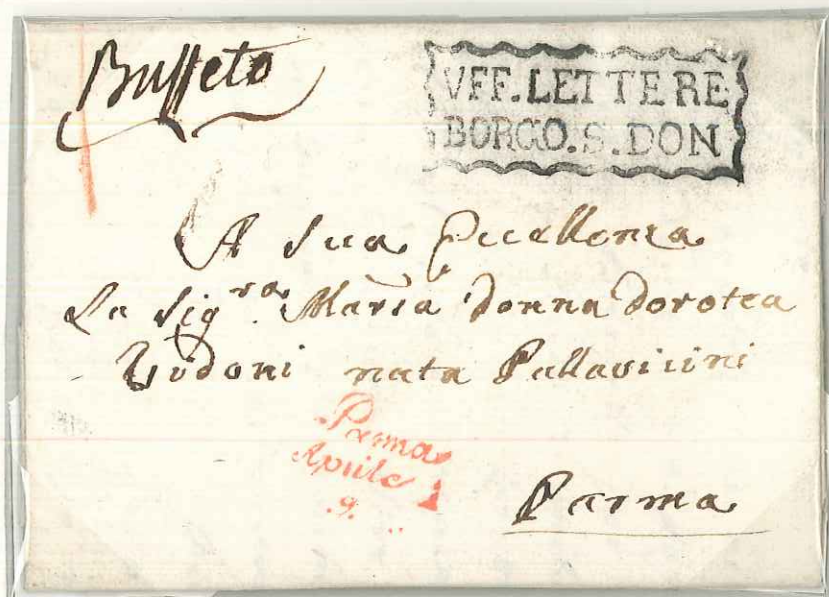 Busseto
VFF. LETTERE
BORGO. S. DON
A Sua Eccellenza
La Sig.ra Maria Donna Dorotea
Vidoni nata Pallavicini
Parma
Aprile
9.
Parma